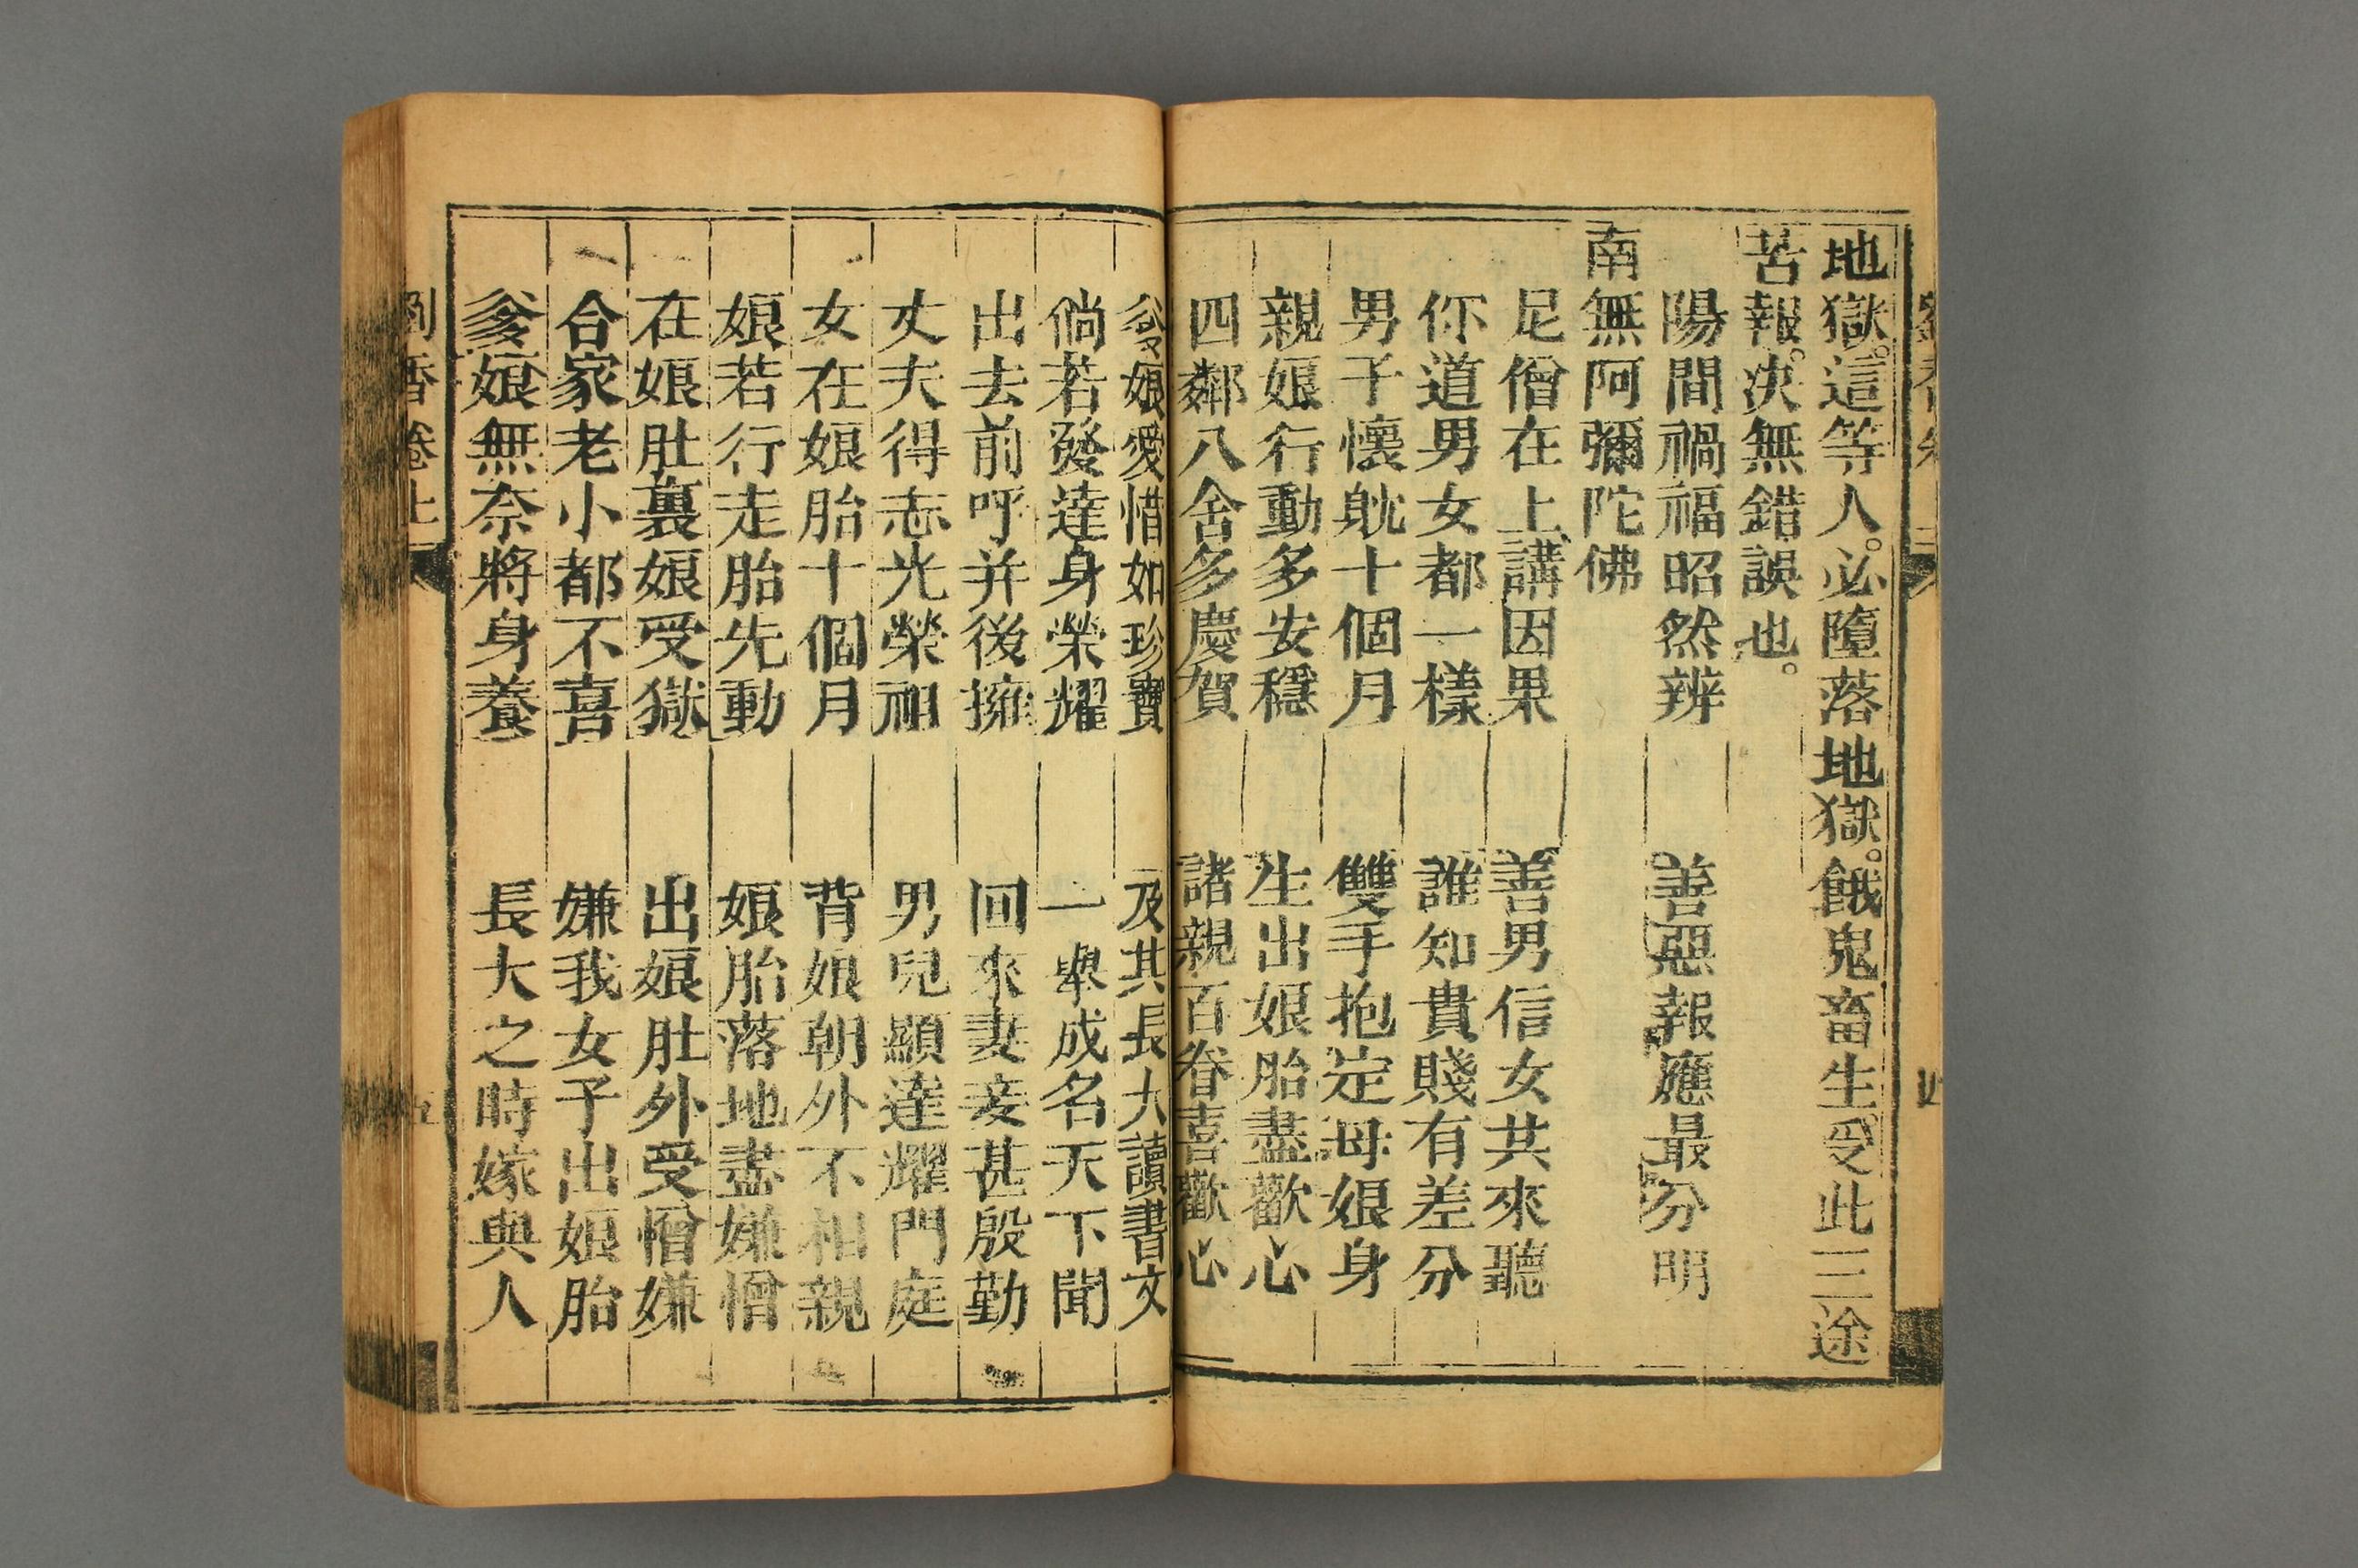 地獄。這等人。必墮落地獄。餓鬼畜生。受此三途
苦報。決無錯誤也。
陽間禍福昭然辨 善惡報應最分明
南無阿彌陀佛
尼僧在上講因果 善男信女共來聽
你道男女都一樣 誰知貴賤有差分
男子懷躭十個月 雙手抱定母娘身
親娘行動多安穩 生出娘胎盡歡心
四鄰八舍多慶賀 諸親百眷喜歡心
爹娘愛惜如珍寶 及其長大讀書文
倘若發達身榮耀 一舉成名天下聞
出去前呼并後擁 回來妻妾甚殷勤
丈夫得志光榮祖 男兒顯達耀門庭
女在娘胎十個月 背娘朝外不相親
娘若行走胎先動 娘胎落地盡嫌憎
在娘肚裏娘受獄 出娘肚外受憎嫌
合家老小都不喜 嫌我女子出娘胎
爹娘無奈將身養 長大之時嫁與人
劉香卷上 五